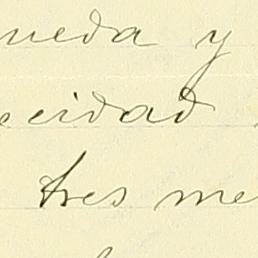 ueda y
ecidad
tres me